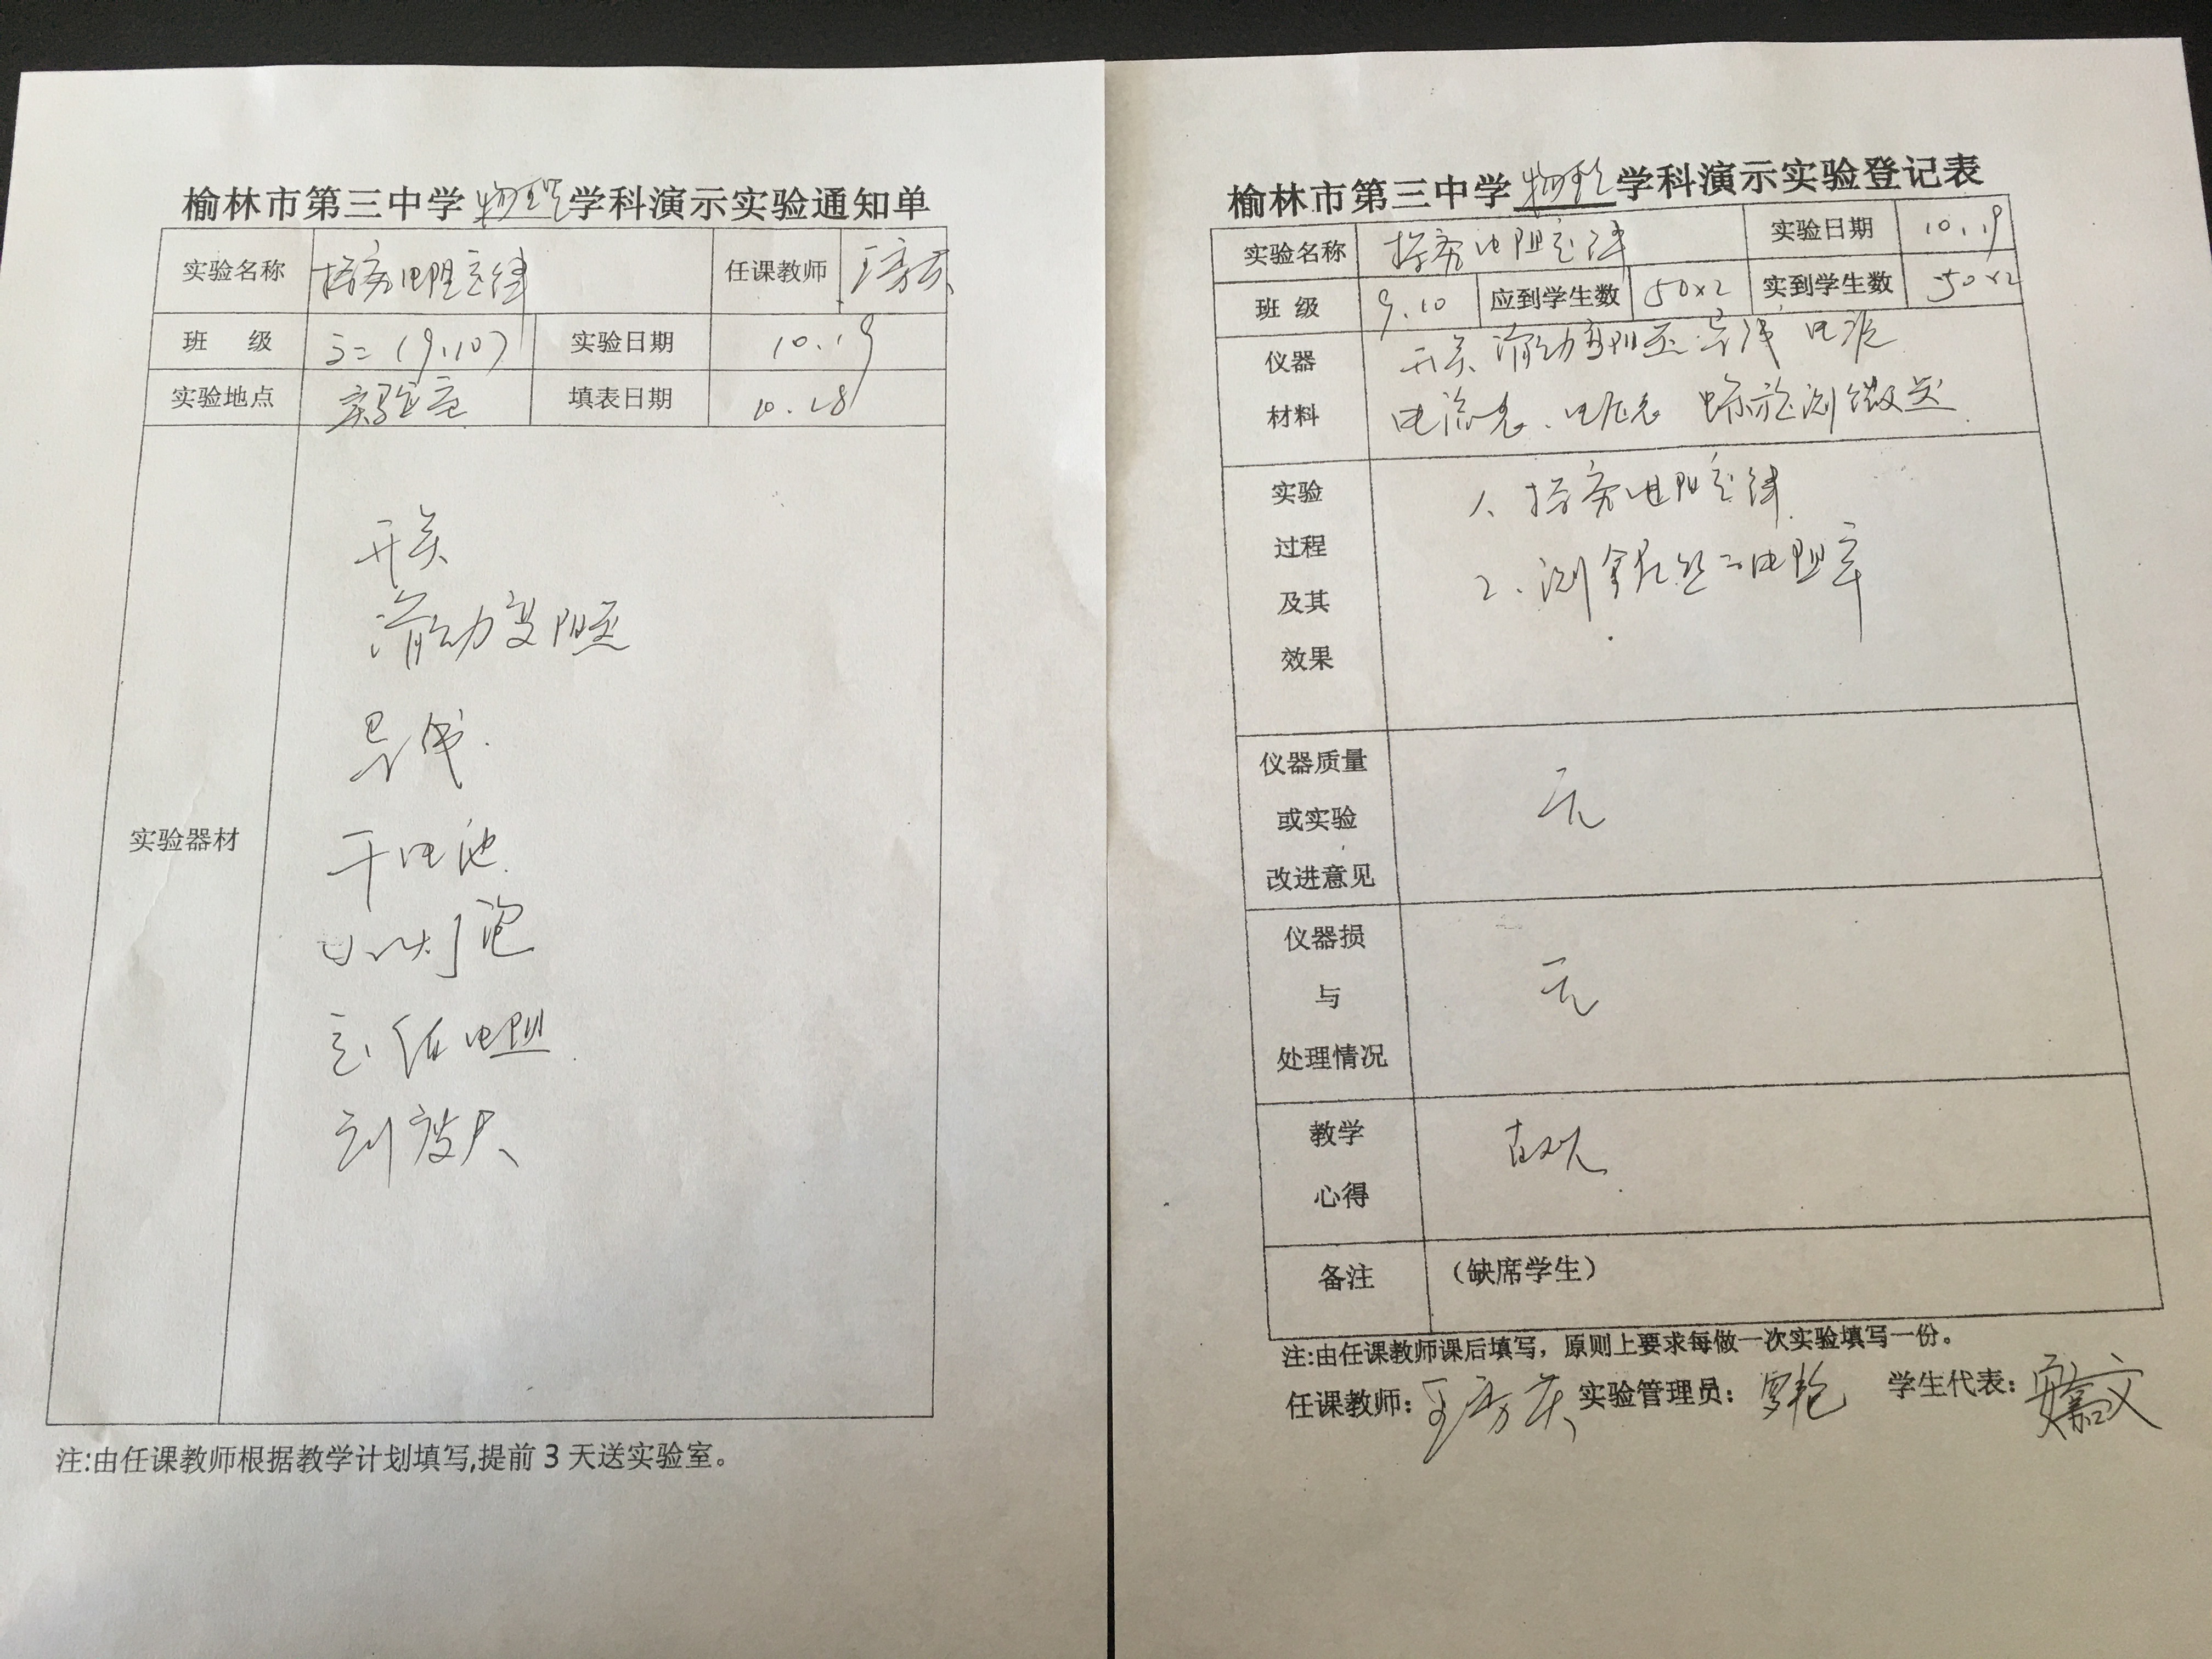 榆林市第三中学 物理 学科演示实验通知单
实验名称 探究电阻定律 任课教师
班 级 高二（9.10） 实验日期 10.19
实验地点 实验室 填表日期 10.18
实验器材
开关
滑动变阻器
导线
干电池
小灯泡
定值电阻
刻度尺
注:由任课教师根据教学计划填写,提前 3 天送实验室。
榆林市第三中学 物理 学科演示实验登记表
实验名称 探究电阻定律 实验日期 10.19
班 级 9.10 应到学生数 50×2 实到学生数 50×2
仪器 开关 滑动变阻器 导线 电源
材料 电流表、电压表 螺旋测微器
实验 1、探究电阻定律
过程 2、测金属丝的电阻率
及其
效果
仪器质量
或实验 无
改进意见
仪器损
与 无
处理情况
教学
心得
备注 （缺席学生）
注:由任课教师课后填写，原则上要求每做一次实验填写一份。
任课教师： 实验管理员： 学生代表：